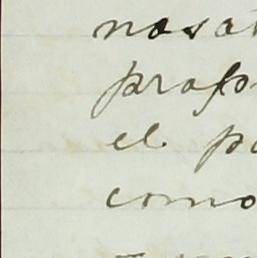 nosot
propo
el pa
como